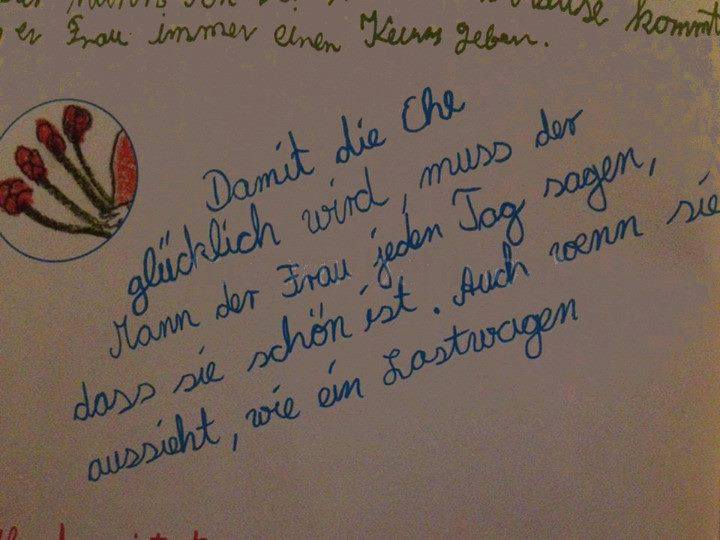 Mann von
nach Hause kommt
er Frau immer einen Kuss geben.
Damit die Ehe
glücklich wird, muss der
Mann der Frau jeden Tag sagen,
dass sie schön ist. Auch wenn sie
aussieht, wie ein Lastwagen